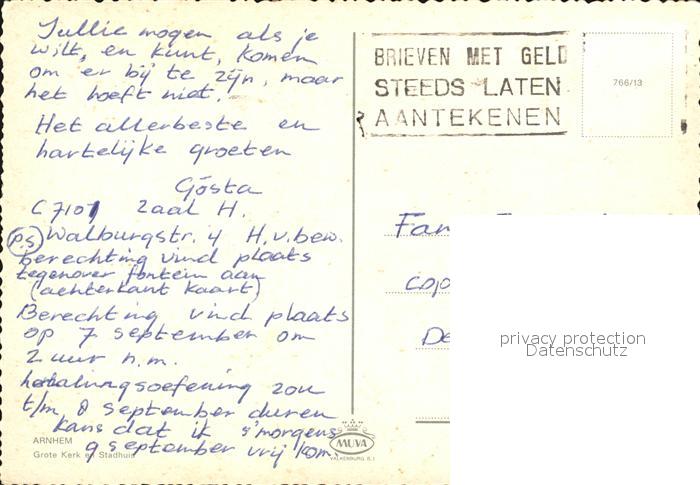 Jullie mogen als je
wilt, en kunt, komen
om er bij te zijn, maar
het hoeft niet.
Het allerbeste en
hartelijke groeten
Gósta
C7101 Zaal H.
P.S Walburgstr. 4 H.v.bew.
Berechting vind plaats
tegenover fontein aan
(achterkant kaart)
Berechting vind plaats
op 7 september om
2 uur n.m.
herhalingsoefening zou
t/m 8 september duren
kans dat ik s'morgens
9 september vrij kom.
ARNHEM
Grote Kerk en Stadhuis
BRIEVEN MET GELD
STEEDS LATEN
AANTEKENEN
766/13
Fam
De
privacy protection
Datenschutz
MUVA
VALKENBURG (L.)